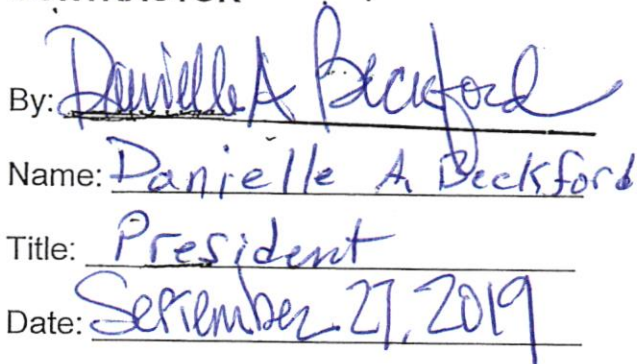 CONTRACTOR
By: Danielle A Beckford
Name: Danielle A. Becksford
Title: President
Date: September 27, 2019